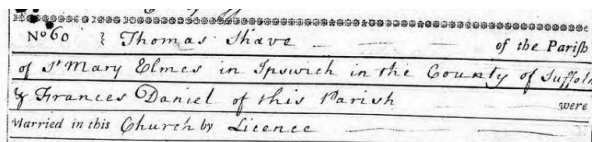 No 60 } Thomas Shave of the Parish
of St Mary Elmes in Ipswich in the County of Suffolk
& Frances Daniel of this Parish were
Married in this Church by Licence